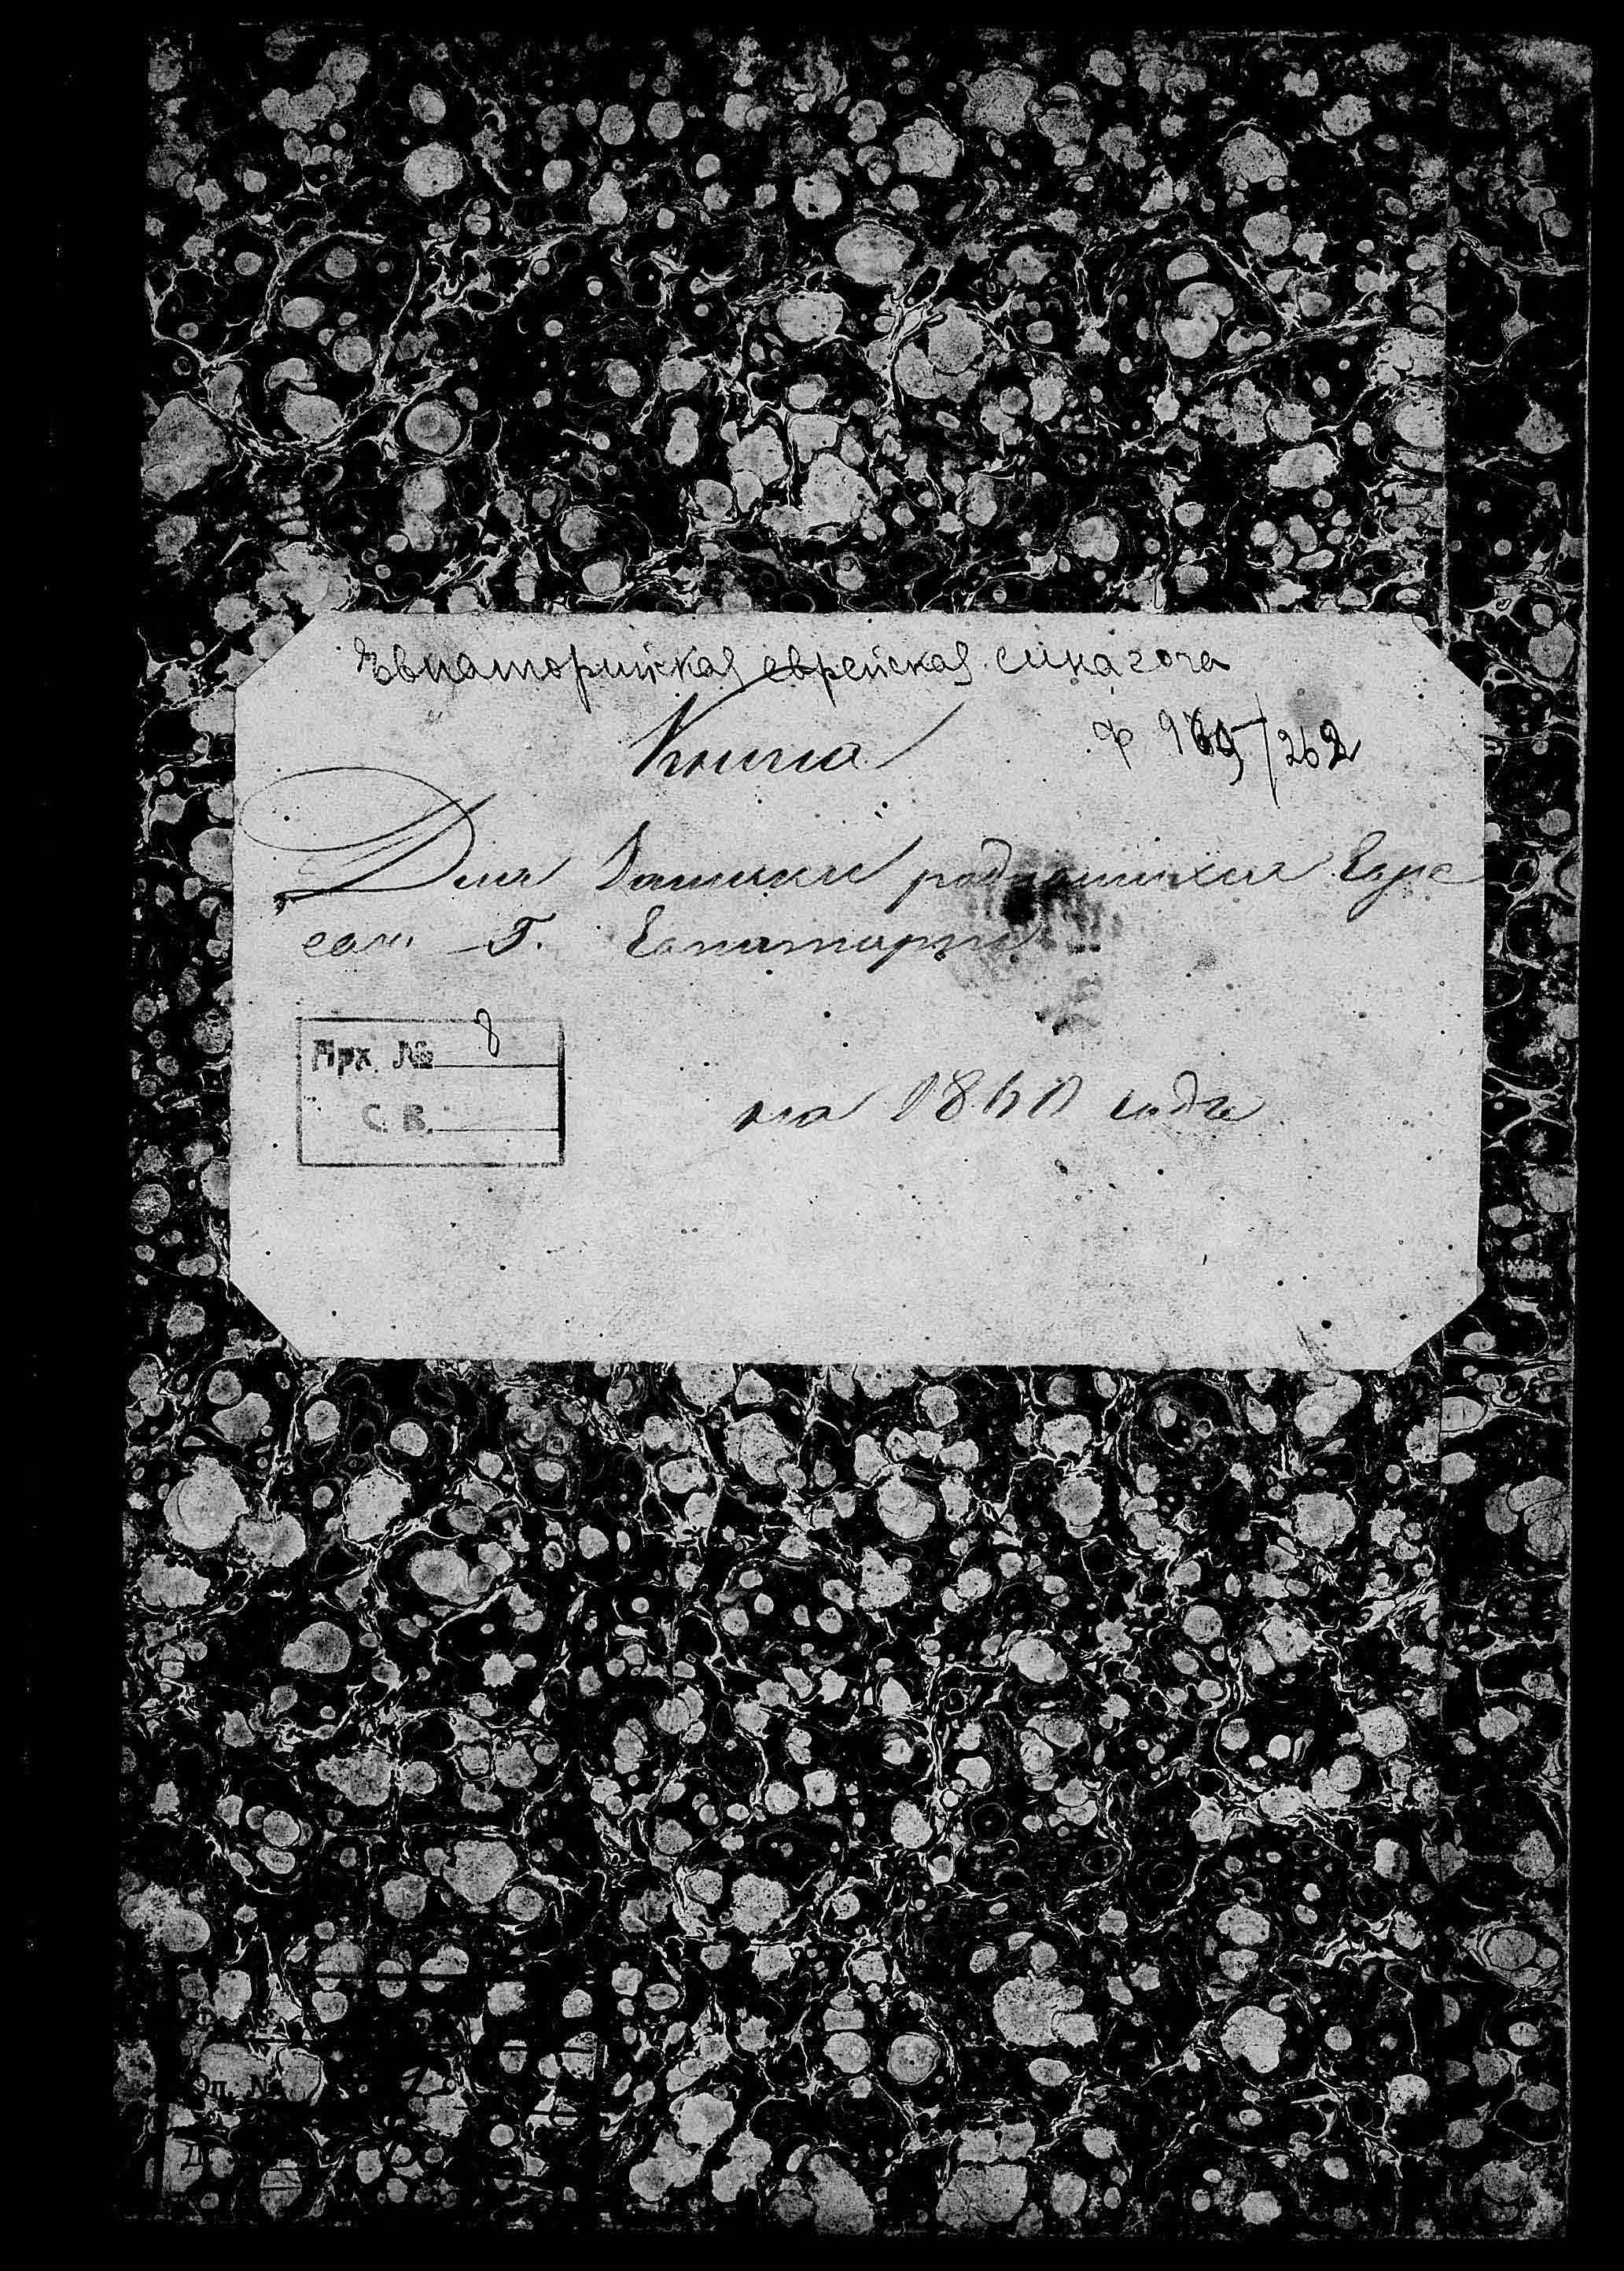 Евпаторийская еврейская синагога
Книга
ф 969/262
Для Записки родившихся Евре
евъ Г. Евпаторіи
Арх. № 8
С. В.
на 1860 годъ
Оп. №